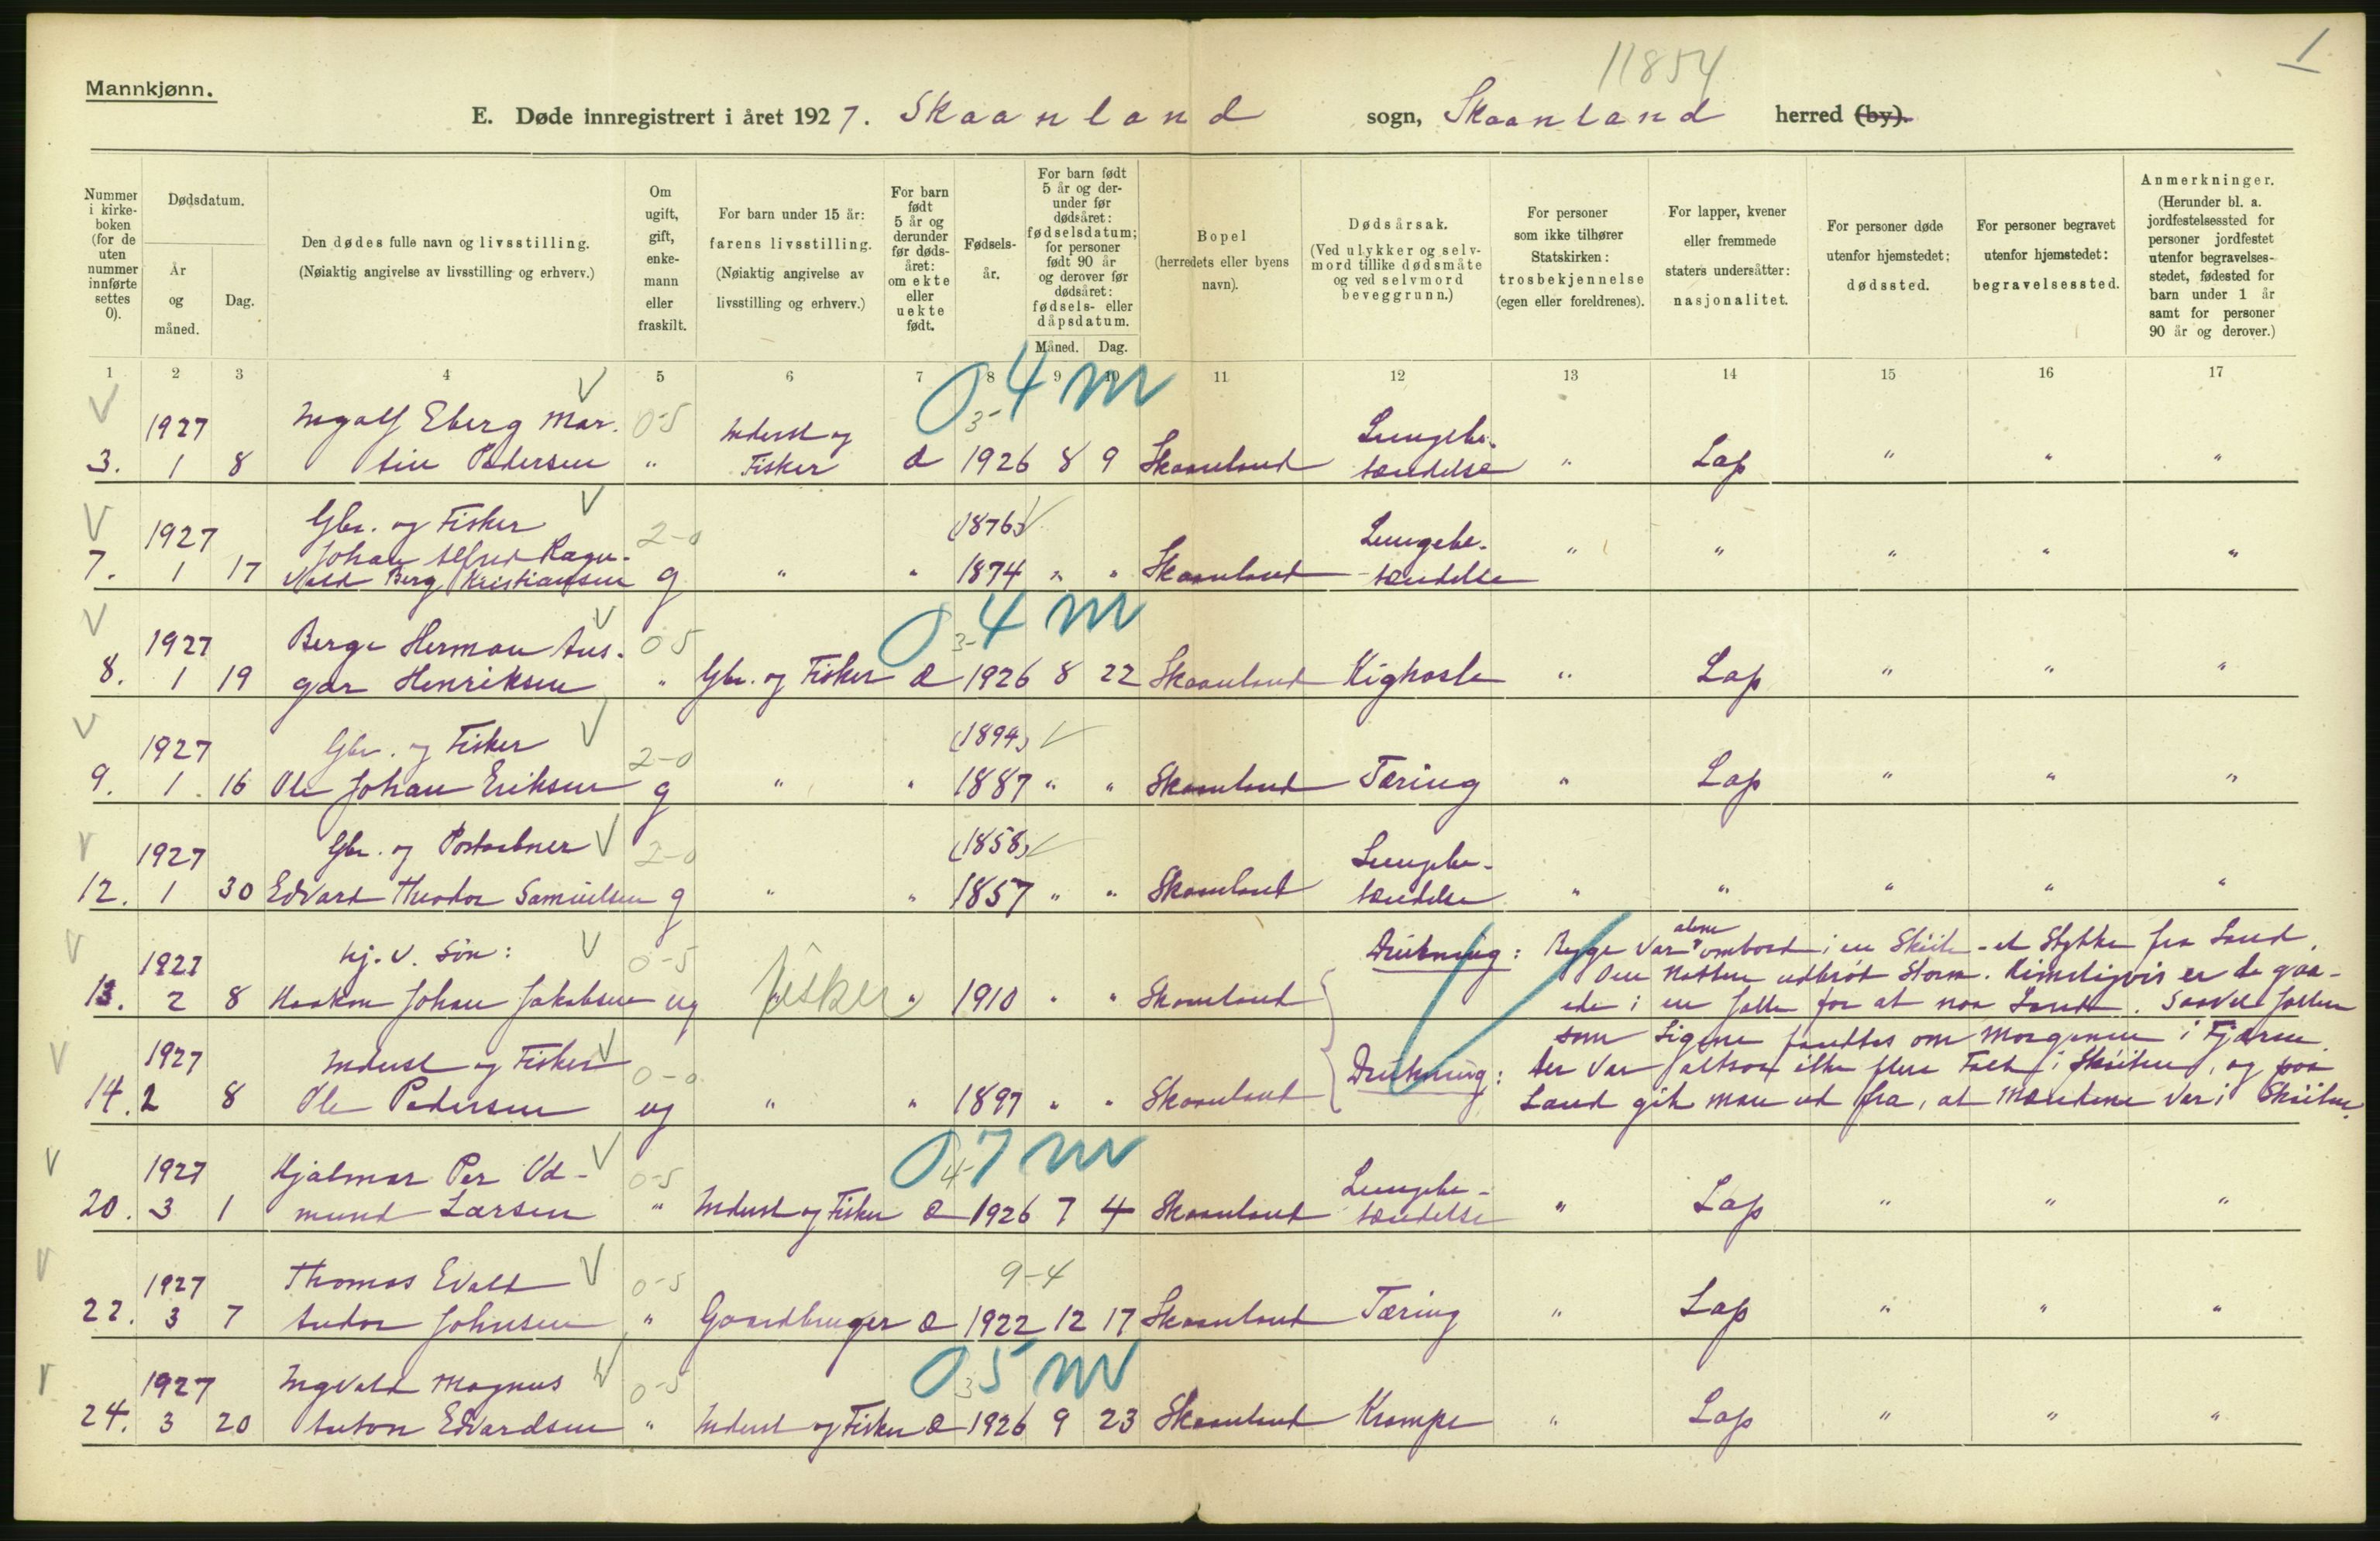 11854
1
Mannkjønn.
E. Døde innregistrert i året 1927. Skaanland sogn, Skaanland herred (by).
Nummer i kirke-boken (for de uten nummer innførte settes 0).
Dødsdatum.
År og måned.
Dag.
Den dødes fulle navn og livsstilling.
(Nøiaktig angivelse av livsstilling og erhverv.)
Om ugift, gift, enke-mann eller fraskilt.
For barn under 15 år: farens livsstilling. (Nøiaktig angivelse av livsstilling og erhverv.)
For barn født 5 år og derunder før døds-året: om ekte eller uekte født.
Fødsels-år.
For barn født 5 år og der-under før dødsåret: fødselsdatum; for personer født 90 år og derover før dødsåret: fødsels- eller dåpsdatum.
Måned. Dag.
Bopel (herredets eller byens navn).
Dødsårsak. (Ved ulykker og selv-mord tillike dødsmåte og ved selvmord beveggrunn.)
For personer som ikke tilhører Statskirken: trosbekjennelse (egen eller foreldrenes).
For lapper, kvener eller fremmede staters undersåtter: nasjonalitet.
For personer døde utenfor hjemstedet: dødssted.
For personer begravet utenfor hjemstedet: begravelsessted.
Anmerkninger. (Herunder bl. a. jordfestelsessted for personer jordfestet utenfor begravelses-stedet, fødested for barn under 1 år samt for personer 90 år og derover.)
1 2 3 4 5 6 7 8 9 10 11 12 13 14 15 16 17
0 4 m
1927 Ingolf Eberg Mar- 0-5 Inderst og 3- Lungebe-
3. 1 8 tin Pedersen " Fisker æ 1926 8 9 Skaanland tændelse " Lap " " "
Gbr. og Fisker (1876)
1927 Johan Alfred Ragn- 2-0 Lungebe-
7. 1 17 vald Berg Kristiansen g " " 1874 " " Skaanland tændelse " " " " "
0 4 m
1927 Berge Herman Ans- 0 5 3-
8. 1 19 gar Henriksen " Gbr. og Fisker æ 1926 8 22 Skaanland Kighoste " Lap " " "
1927 Gbr. og Fisker 2-0 (1894)
9. 1 16 Ole Johan Eriksen g " " 1887 " " Skaanland Tæring " Lap " " "
1927 Gbr. og Postaabner 2-0 (1858) Lungebe-
12. 1 30 Edvard Theodor Samuelsen g " " 1857 " " Skaanland tændelse " " " " "
1927 Hj. v. Søn: 0-5 Drukning: Begge var alene ombord i en Skøite - et Stykke fra Land.
Om Natten udbrød Storm. Rimeligvis er de gaa-
13. 2 8 Haakon Johan Jakobsen ug Fisker " 1910 " " Skaanland ede i en Jolle for at naa Land. Saavel Jollen
som Ligene fandtes om Morgenen i Fjæren.
1927 Inderst og Fisker 0-0
14. 2 8 Ole Pedersen ug " " 1897 " " Skaanland Drukning: Der var altsaa ikke flere Folk i Skøiten, og paa
Land gik man ud fra, at Mændene var i Skøiten.
0 7 m
1927 Hjalmar Per Ed- 0-5 4- Lungebe-
20. 3 1 mund Larsen " Inderst og Fisker æ 1926 7 4 Skaanland tændelse " Lap " " "
1927 Thomas Evald 0-5 9-4
22. 3 7 Andor Johnsen " Gaardbruger æ 1922 12 17 Skaanland Tæring " Lap " " "
0 5 m
1927 Ingvald Magnus 0-5 3
24. 3 20 Anton Edvardsen " Inderst og Fisker æ 1926 9 23 Skaanland Krampe " Lap " " "